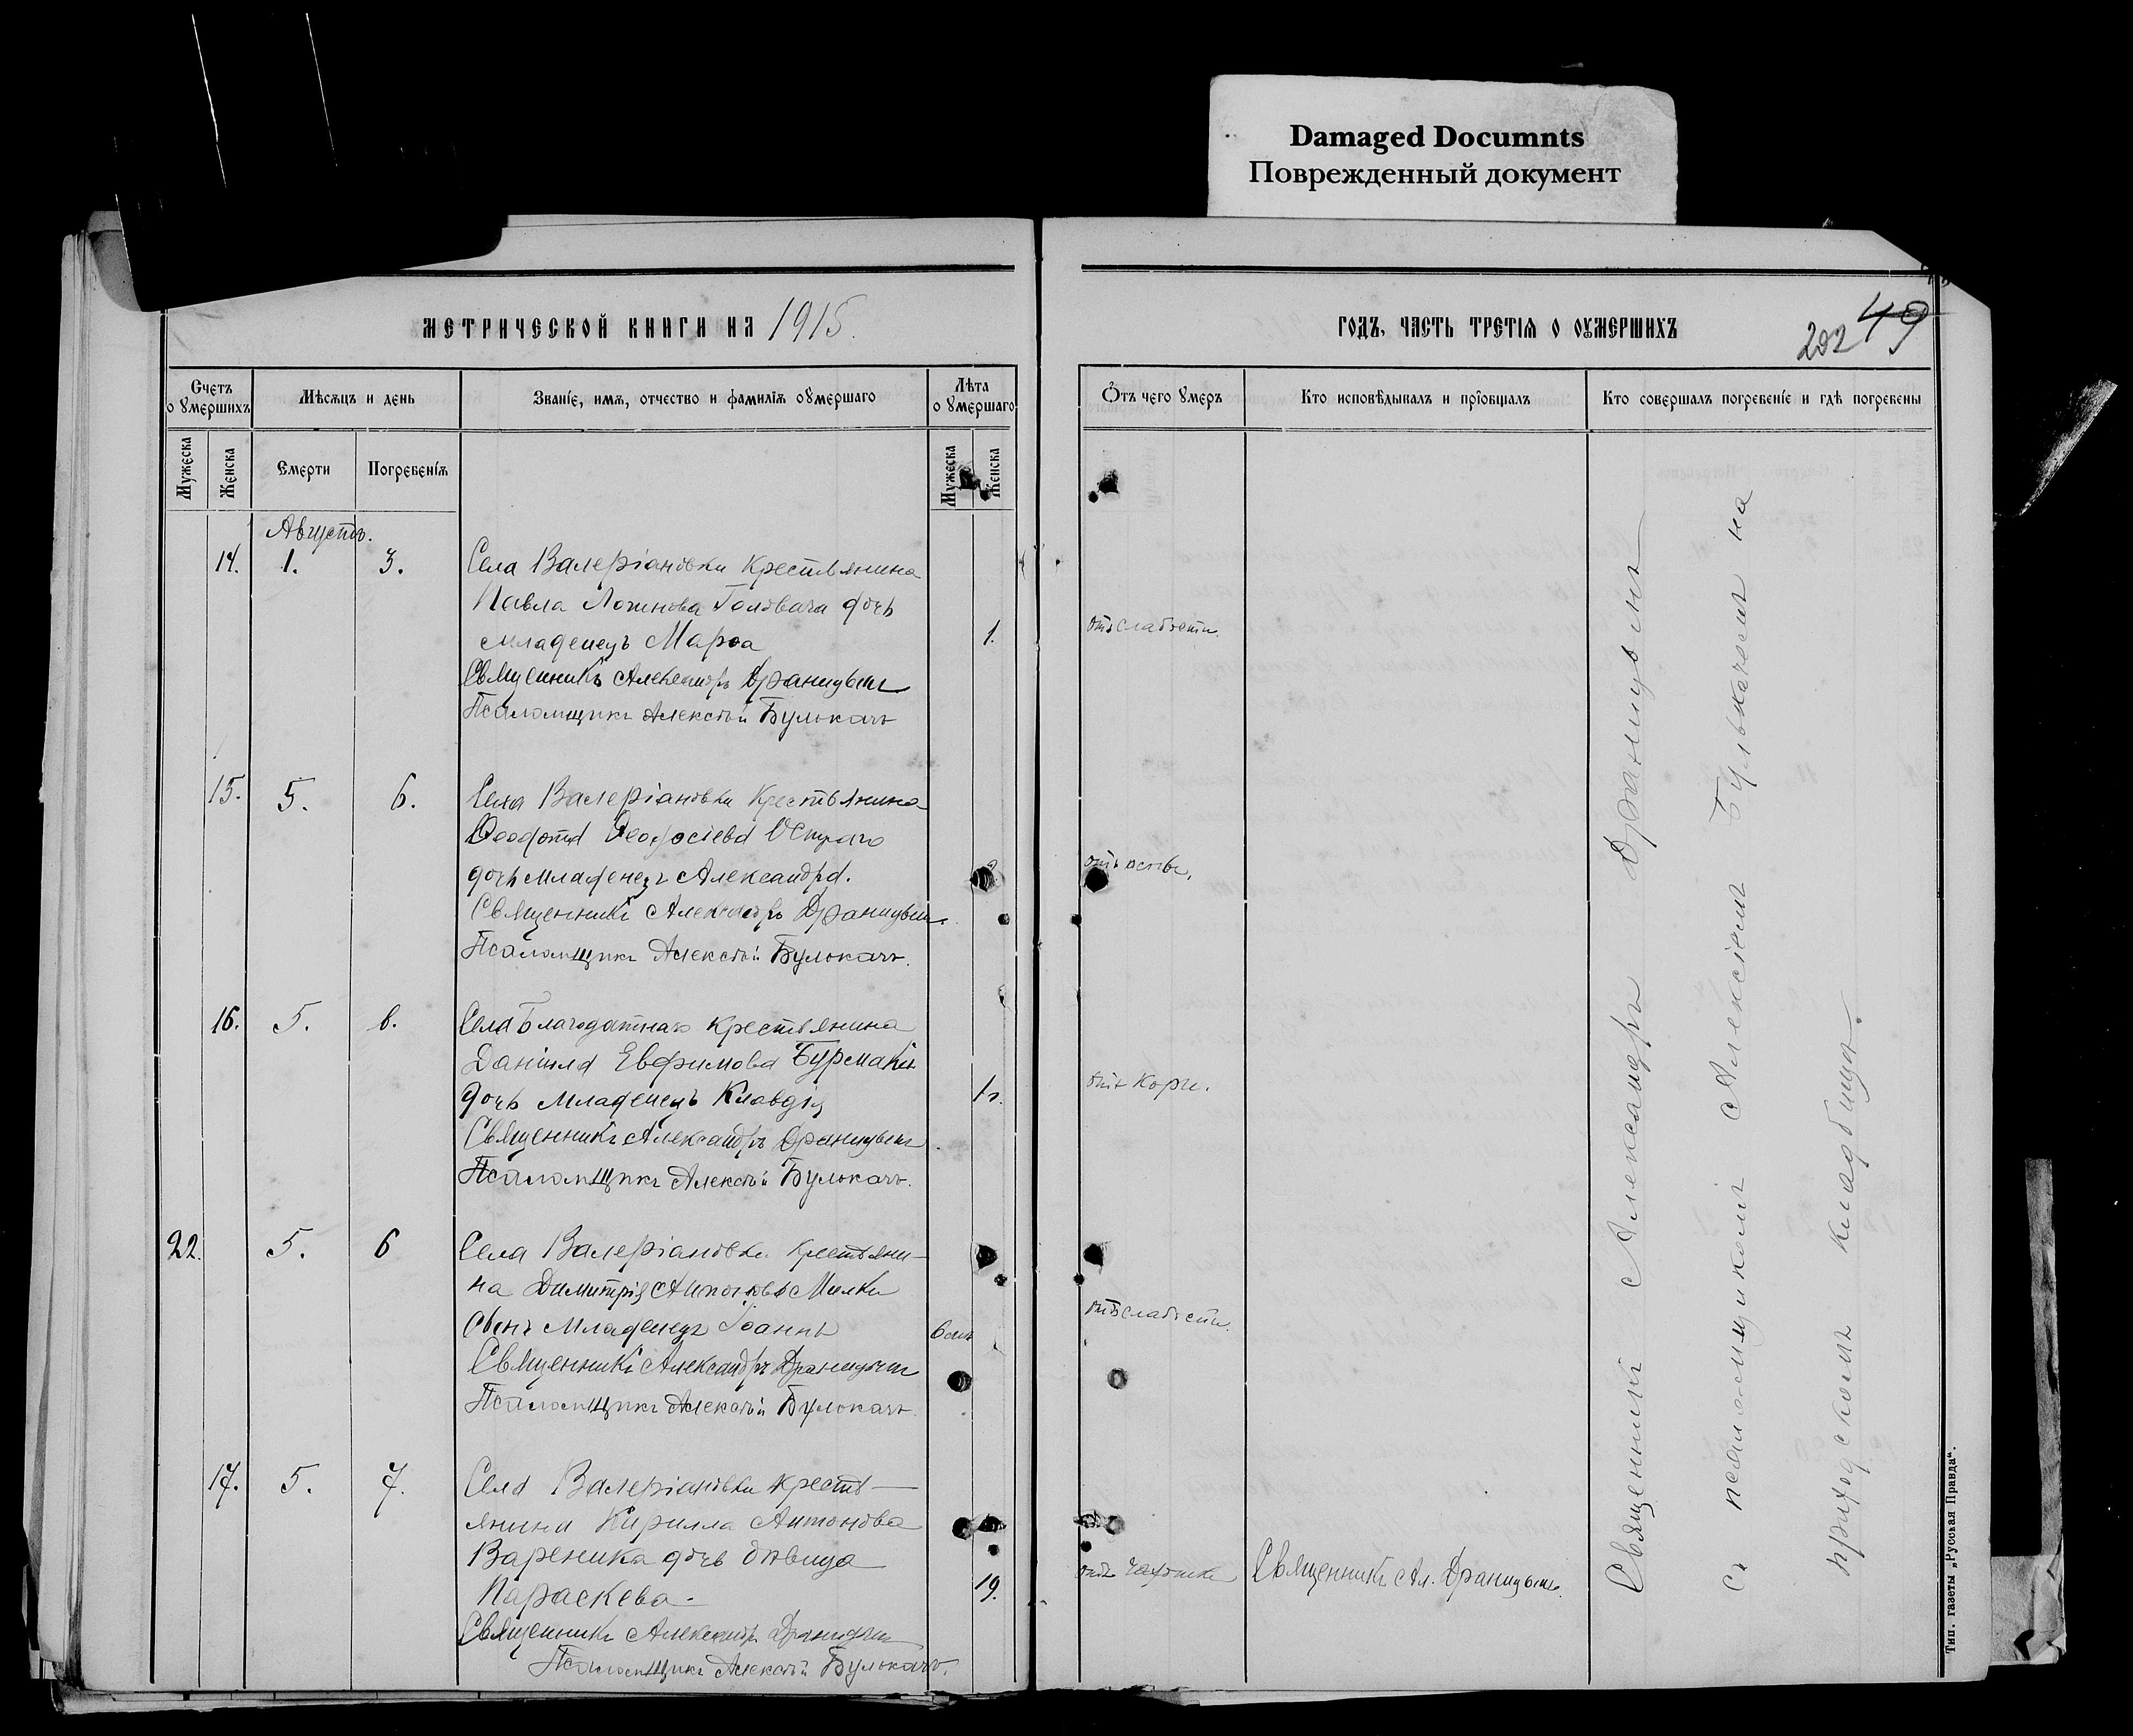 Damaged Documnts
Поврежденный документ
МЕТРИЧЕСКОЙ КНИГИ НА 1915
ГОДЪ, ЧАСТЬ ТРЕТІЯ О ОУМЕРШИХЪ
202 49
Счетъ оумершихъ
Мѣсяцъ и день
Званіе, имя, отчество и фамилія оумершаго
Лѣта оумершаго
Отъ чего умеръ
Кто исповѣдывалъ и пріобщалъ
Кто совершалъ погребеніе и гдѣ погребены
Мужеска
Женска
Смерти
Погребенія
Мужеска
Женска
Августъ.
14. 1. 3. Села Валеріановки крестьянина
Павла Логинова Головача дочь
младенецъ Марѳа 1. отъ слабости.
Священникъ Александръ Драницынъ
Псаломщикъ Алексѣй Булькачъ
15. 5. 6. Села Валеріановки крестьянина
Ѳеодота Ѳеодосіева
дочь младенецъ Александра.
Священникъ Александръ Драницынъ
Псаломщикъ Алексѣй Булькачъ.
16. 5. 6. Села Благодатнаго крестьянина
Даніила Евфимова Бурмаки
дочь младенецъ Клавдія 1 г. отъ кори.
Священникъ Александръ Драницынъ
Псаломщикъ Алексѣй Булькачъ.
22. 5. 6 Села Валеріановки крестьяни-
на Димитрія
сынъ младенецъ Іоаннъ 6 м. отъ слабости.
Священникъ Александръ Драницынъ
Псаломщикъ Алексѣй Булькачъ.
17. 5. 7. Села Валеріановки кресть-
янина Кирилла Антонова
Вареника дочь дѣвица
Параскева. 19. отъ чахотки Священникъ Ал. Драницынъ.
Священникъ Александръ Драницынъ
Псаломщикъ Алексѣй Булькачъ.
Священникъ Александръ Драницынъ
съ псаломщикомъ Алексіемъ Булькачемъ на
приходскомъ кладбищѣ.
Тип. газеты „Русская Правда“.